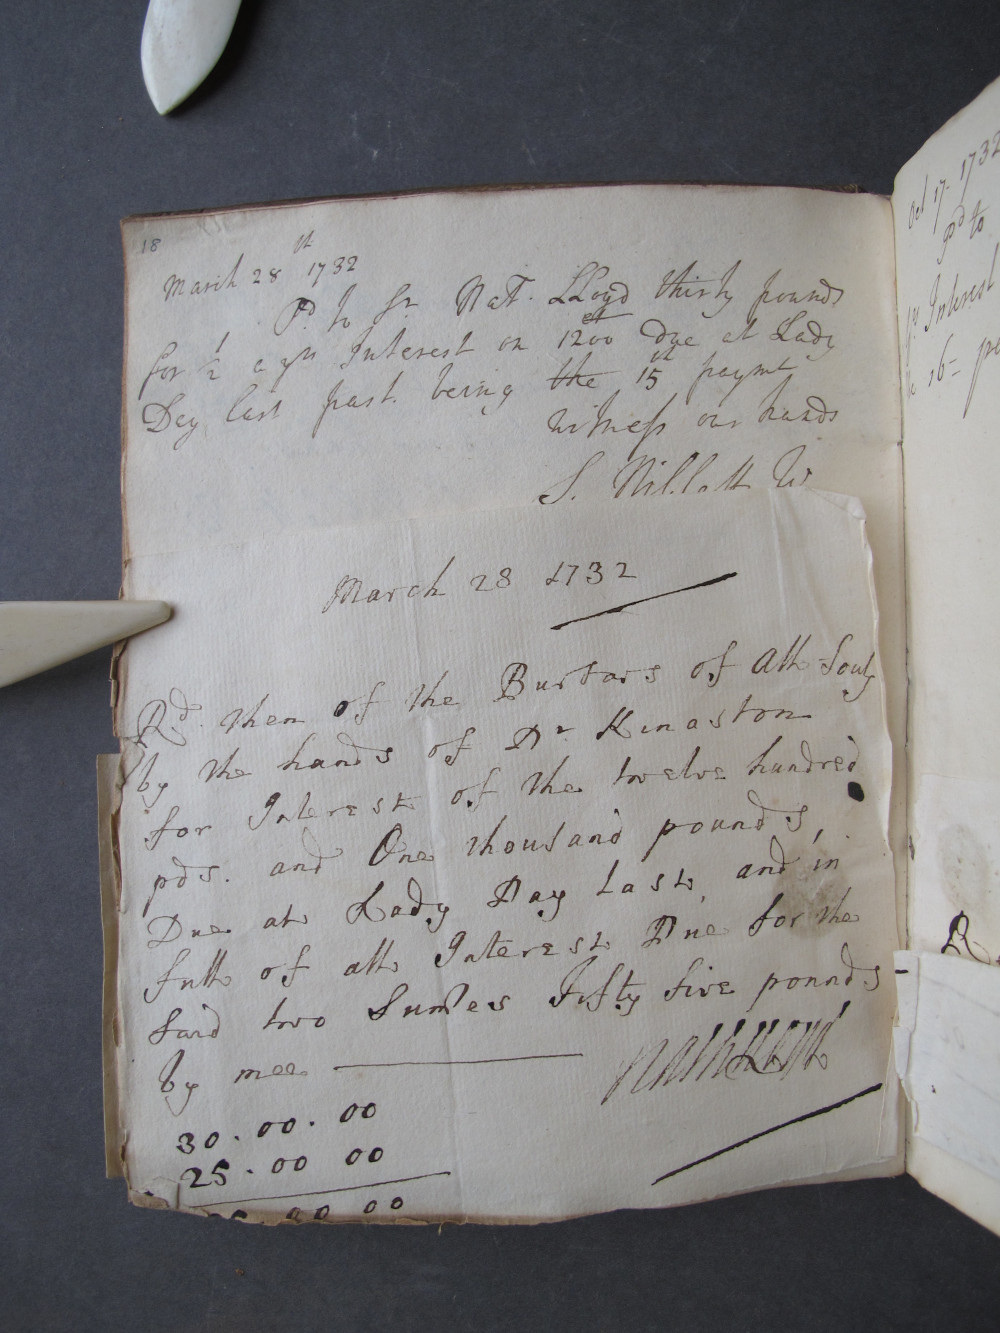 18
March 28th 1732
Pd to Sr Nat. LLoyd thirty pounds
for 1/2 a yrs Interest on 1200 due at Lady
Day last past. being the 15th paymt
witness our hands
S. Niblett W
March 28 1732
Rd. then of the Bursars of All-Souls
by the hands of Dr Kinaston
for Interest of the twelve hundred
pds. and One thousand pounds,
Due at Lady Day last, and in
full of all Interest Due for the
said two Sumes Fifty five pounds
by mee
Nath Lloyd
30. 00. 00
25. 00 00
00 00
Oct 17. 1732
pd to
Interest
16